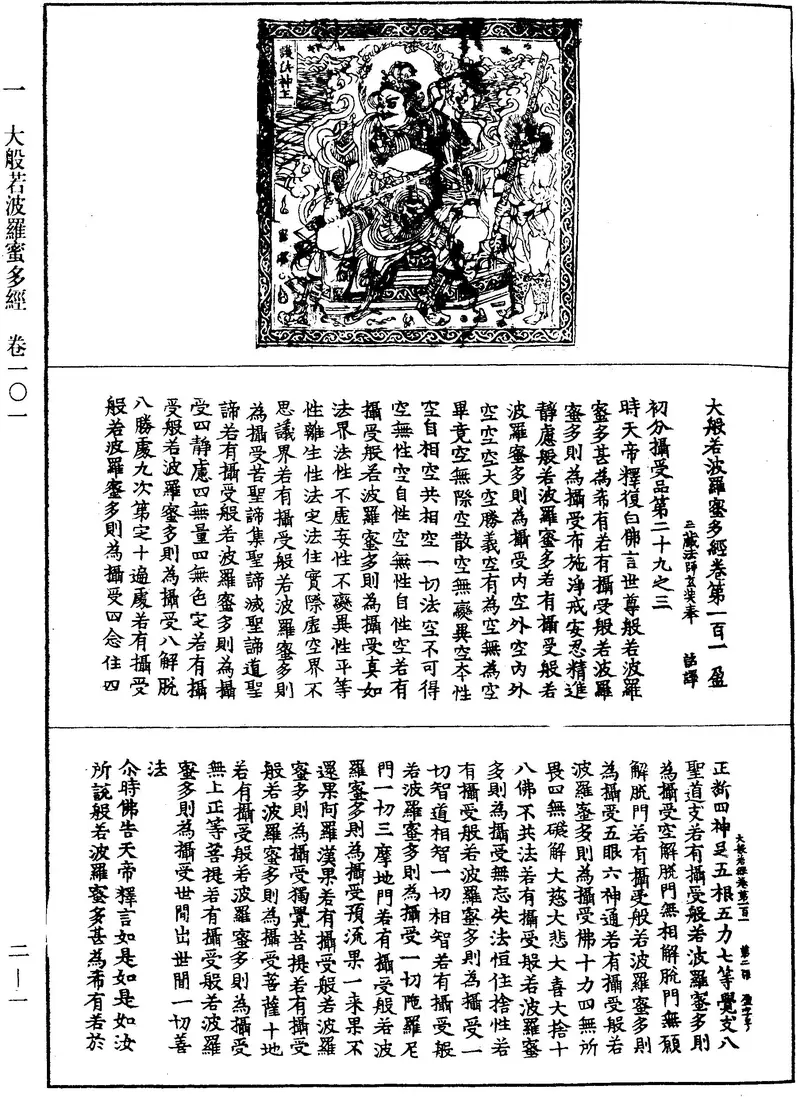 一 大般若波羅蜜多經 卷一〇一
二—一
護法神王
大般若波羅蜜多經卷第一百一 盈
三藏法師玄奘奉 詔譯
初分攝受品第二十九之三
時天帝釋復白佛言世尊般若波羅
蜜多甚為希有若有攝受般若波羅
蜜多則為攝受布施淨戒安忍精進
靜慮般若波羅蜜多若有攝受般若
波羅蜜多則為攝受內空外空內外
空空空大空勝義空有為空無為空
畢竟空無際空散空無變異空本性
空自相空共相空一切法空不可得
空無性空自性空無性自性空若有
攝受般若波羅蜜多則為攝受真如
法界法性不虛妄性不變異性平等
性離生性法定法住實際虛空界不
思議界若有攝受般若波羅蜜多則
為攝受苦聖諦集聖諦滅聖諦道聖
諦若有攝受般若波羅蜜多則為攝
受四靜慮四無量四無色定若有攝
受般若波羅蜜多則為攝受八解脫
八勝處九次第定十遍處若有攝受
般若波羅蜜多則為攝受四念住四
大般若經卷第一百一 第二張 盈字号
正斷四神足五根五力七等覺支八
聖道支若有攝受般若波羅蜜多則
為攝受空解脫門無相解脫門無願
解脫門若有攝受般若波羅蜜多則
為攝受五眼六神通若有攝受般若
波羅蜜多則為攝受佛十力四無所
畏四無礙解大慈大悲大喜大捨十
八佛不共法若有攝受般若波羅蜜
多則為攝受無忘失法恒住捨性若
有攝受般若波羅蜜多則為攝受一
切智道相智一切相智若有攝受般
若波羅蜜多則為攝受一切陁羅尼
門一切三摩地門若有攝受般若波
羅蜜多則為攝受預流果一来果不
還果阿羅漢果若有攝受般若波羅
蜜多則為攝受獨覺菩提若有攝受
般若波羅蜜多則為攝受菩薩十地
若有攝受般若波羅蜜多則為攝受
無上正等菩提若有攝受般若波羅
蜜多則為攝受世間出世間一切善
法
尒時佛告天帝釋言如是如是如汝
所說般若波羅蜜多甚為希有若於